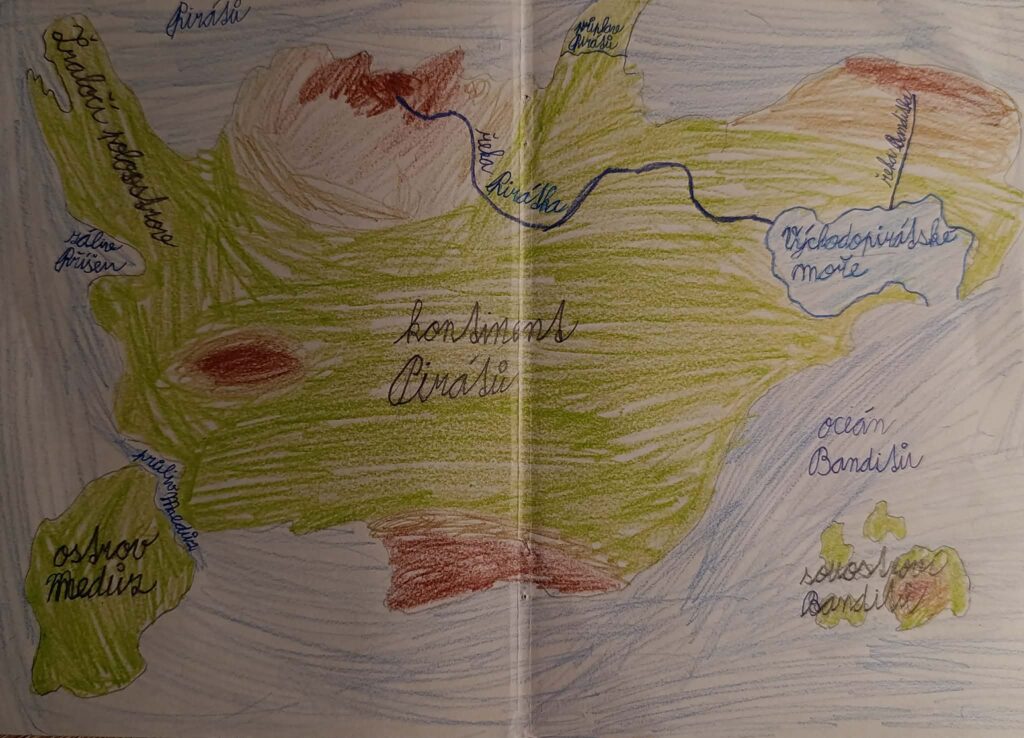 Pirátů
průplav
Pirátů
Žraločí poloostrov
řeka Pirátka
řeka Banditka
záliv
Příšer
Východopirátské
moře
kontinent
Pirátů
oceán
Banditů
průliv Medůz
ostrov
Medůz
souostroví
Banditů